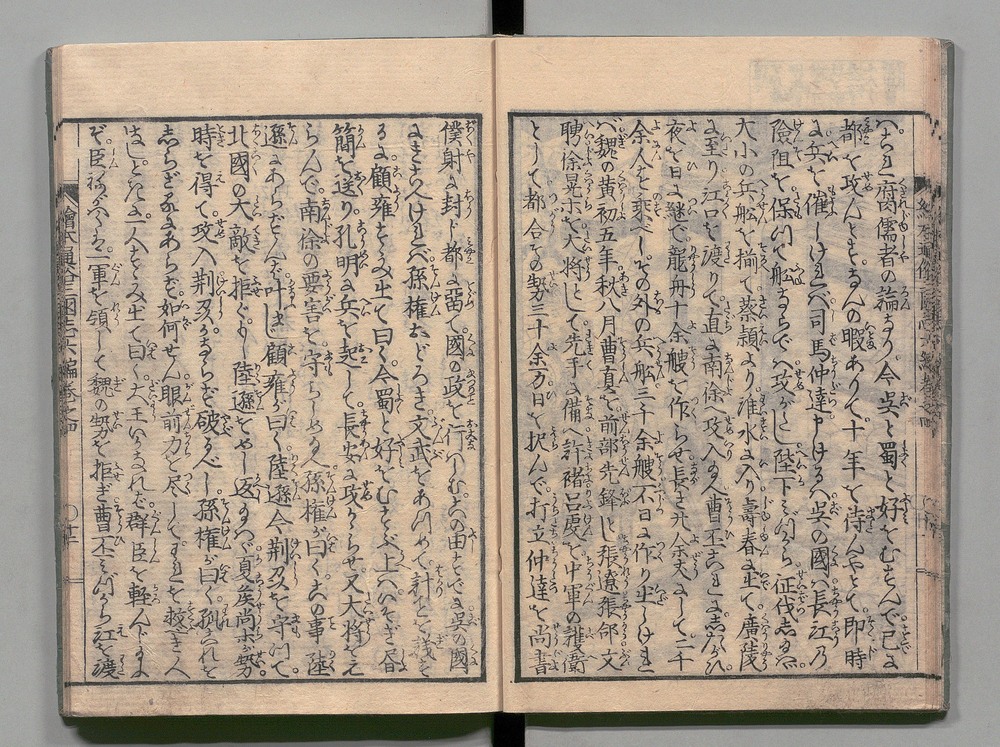 へらく是腐儒者の論なり今呉と蜀と好をむすんで已に
都を攻んとするんの暇ありて十年を待んやとて即時
に兵を催しければ司馬仲達申けるハ呉の國ハ長江乃
險阻を保つて船ならでハ攻がたし陛下みづから征伐志給ハ
大小の兵船を揃て蔡潁より淮水に入り壽春に出て廣陵
に至り江口を渡りて直に南徐へ攻入給へ曹丕これに志たがひ
夜を日に継で龍舟十余艘を作らせ長さ廿余丈にして二千
余人を乗べしその外の兵船三千余艘不日に作り出しけれ
バ魏の黄初五年秋八月曹真を前部先鋒とし張遼張郃文
聘徐晃ホを大将として先手に備へ許褚呂虔を中軍の護衛
として都合その勢三十余万日を択んで打立仲達を尚書
僕射に封じ都に留て國の政を行ハしむこの由すでに呉の國
にきこへければ孫権おどろき文武をあつめて計をぞ議せ
るに顧雍すゝみ出て曰く今蜀と好をむすぶ上ハいそぎ書
簡を送り孔明に兵を起して長安を攻らせ又大将をえ
らんで南徐の要害を守らしめ給へ孫権が曰くこの事陸
遜にあらざれバ叶まじ顧雍が曰く陸遜今荆州を守つて
北國の大敵を拒ぐもし陸遜をやし返し給ハゞ夏侯尚ホが勢
時を得て攻入荆州かならず破るべし孫権が曰く孤これを
志らざるにあらず如何せん眼前力を尽してすれを救べきハ
なしときに一人すゝみ出て曰く大王いかなれバ群臣を軽んじ給
ぞ臣ねがハくハ一軍を領して魏の勢を拒ぎ曹丕みづから江を渡
繪本通俗三國志六編巻之四